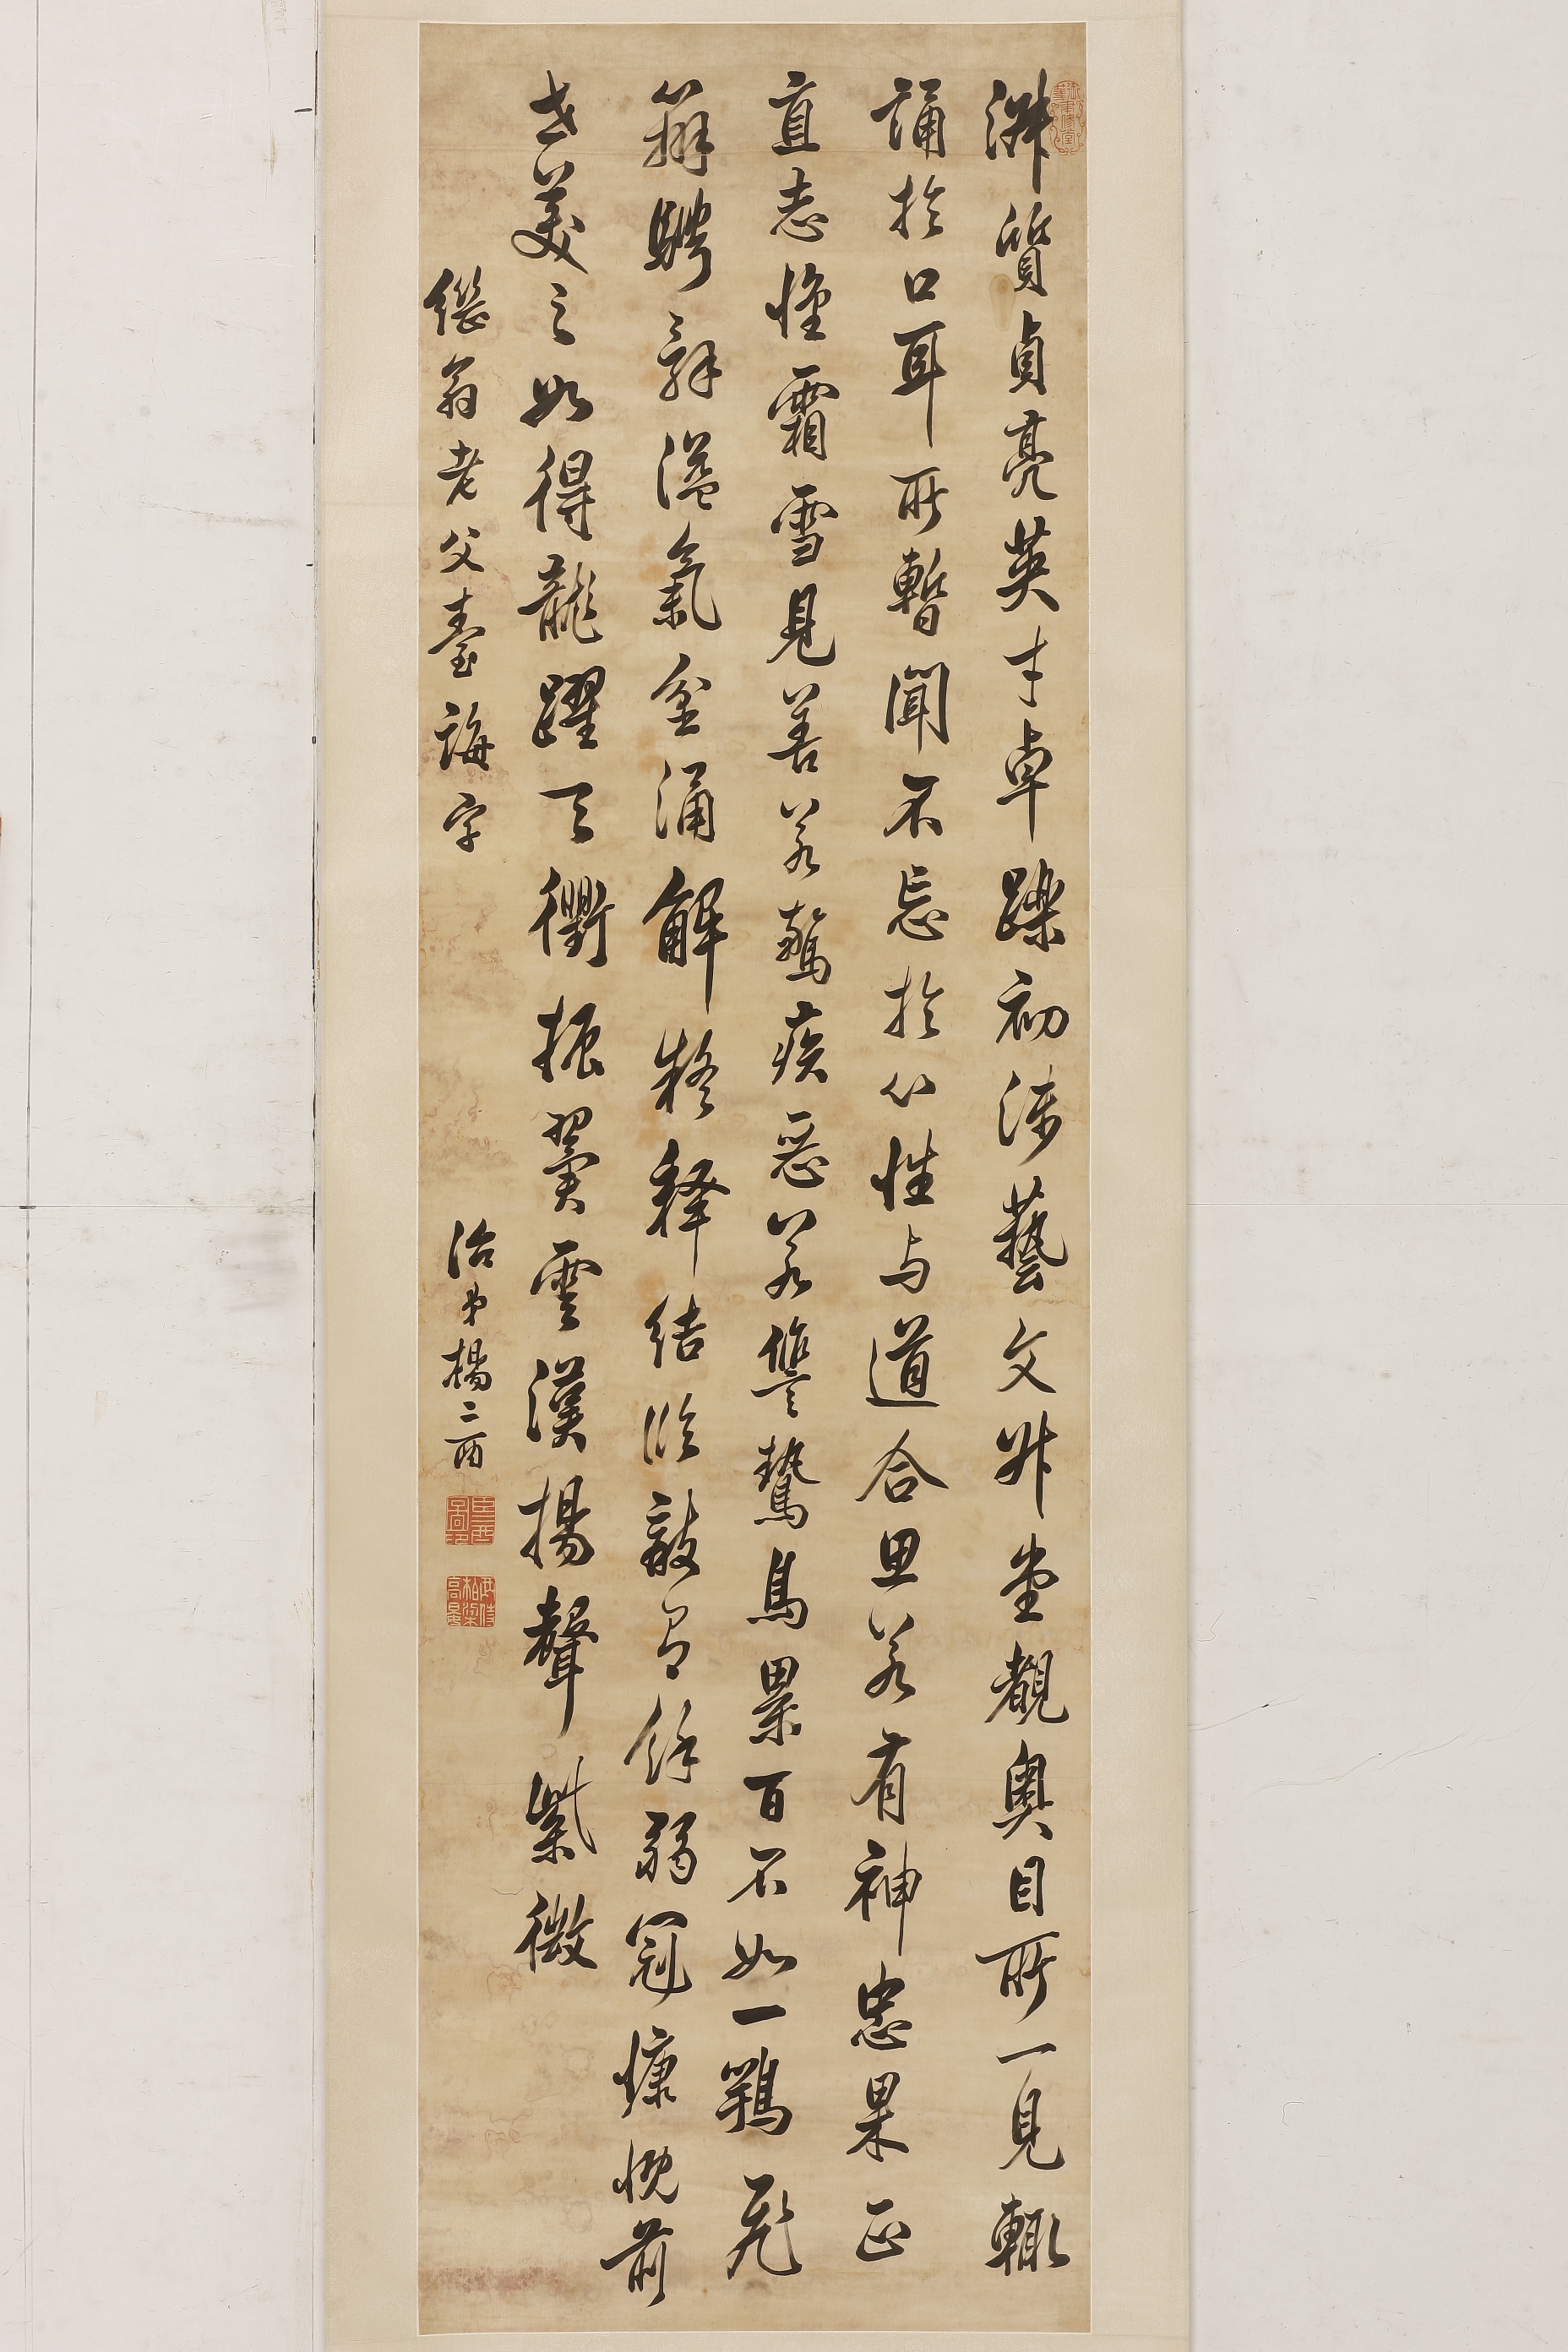 淑質貞亮英才卓躒初涉藝文升堂覩奧目所一見輒
誦於口耳所暫聞不忘於心性与道合思若有神忠果正
直志懷霜雪見善若驚疾惡若讐鷙鳥累百不如一鶚飛
辯騁辭溢氣坌涌解疑释結臨敵有餘弱冠慷慨前
世美之如得龍躍天衢振翼雲漢揚聲紫微
繼翁老父臺誨字
治弟楊三酉